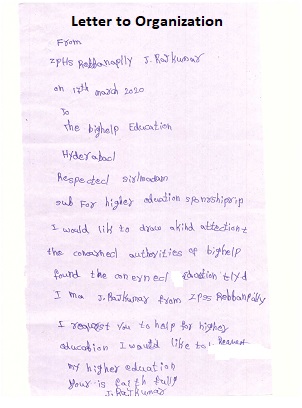 Letter to Organization
From
ZPHS Robbanaplly J. Rajkumar
on 17th march 2020
To
the bighelp Education
Hyderabad
Respected sir/madam
sub For higher oduation sponrshiprip
I would like to draw akihd attection t
the concarned authorities of bighelp
found the
I ma J. Rajkumar from ZPSS Robbanpally
I reqoest you to help for higher
educabion I would like to Request
my higher eduation
your is faith full
J. Rajkumar